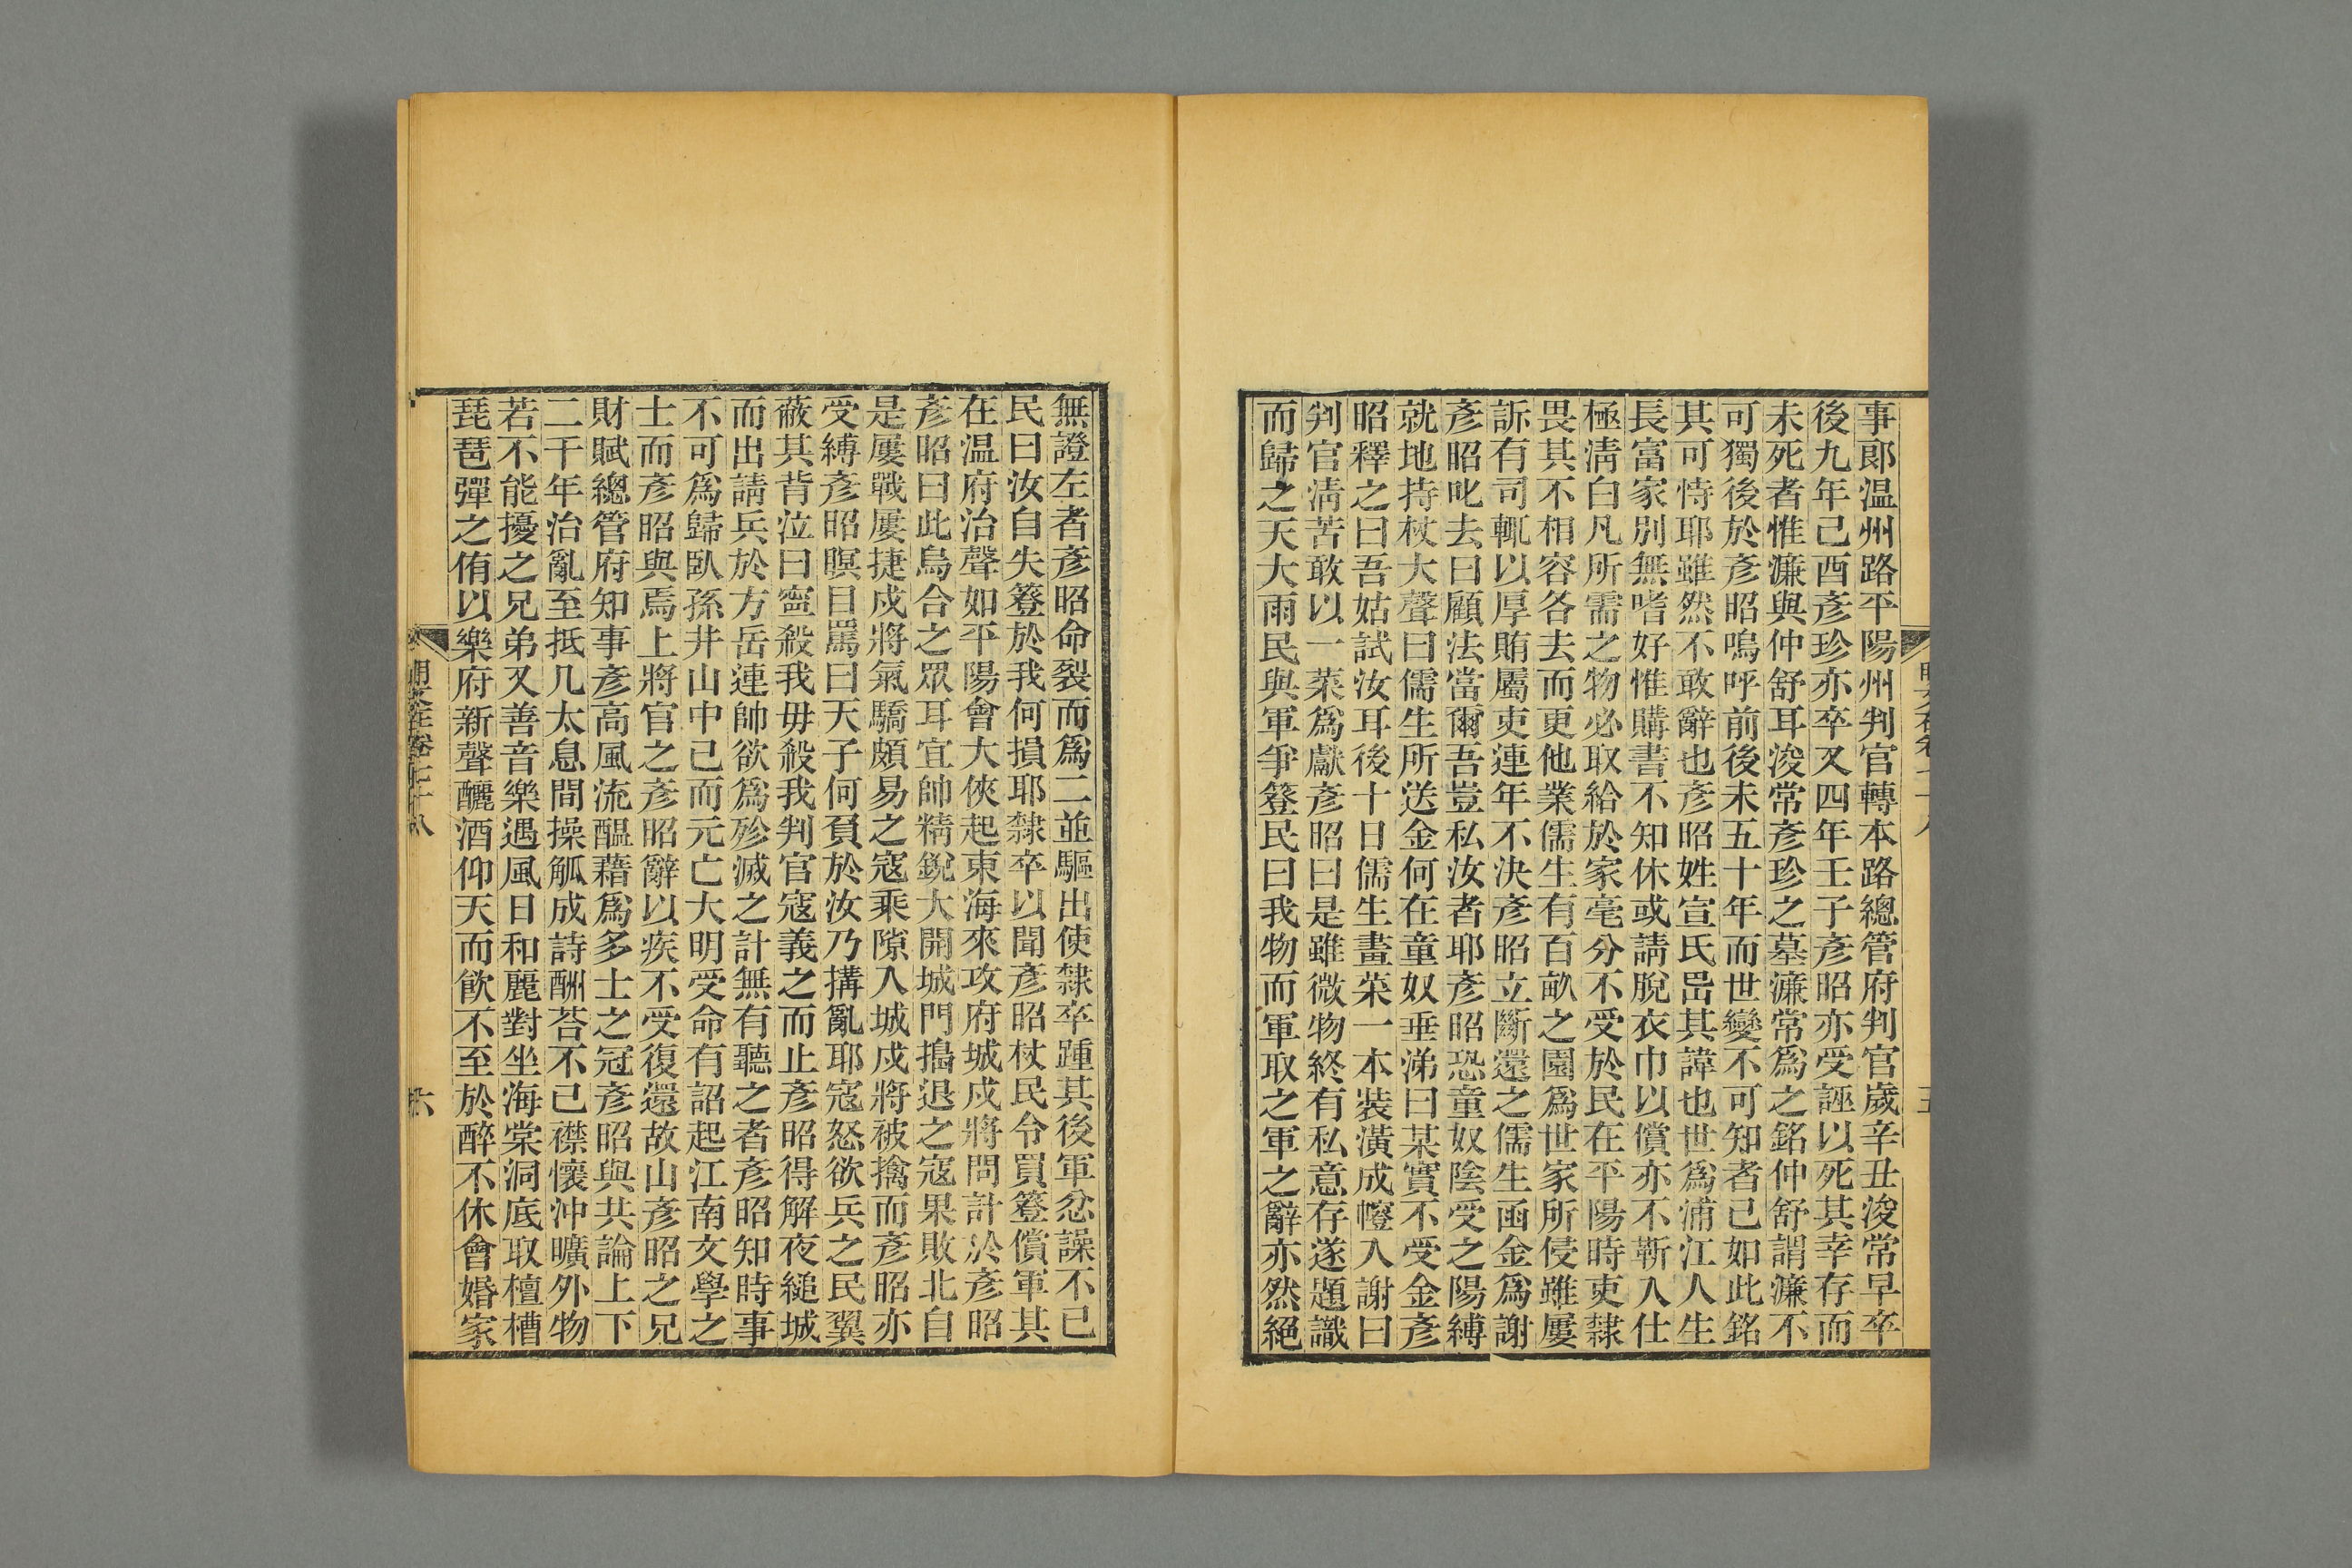 事郞温州路平陽州判官轉本路總管府判官歲辛丑浚常早卒
後九年己酉彥珍亦卒又四年壬子彥昭亦受誣以死其幸存而
未死者惟濂與仲舒耳浚常彥珍之墓濂常爲之銘仲舒謂濂不
可獨後於彥昭嗚呼前後未五十年而世變不可知者已如此銘
其可恃耶雖然不敢辭也彥昭姓宣氏嵒其諱也世爲浦江人生
長富家別無嗜好惟購書不知休或請脫衣巾以償亦不靳入仕
極淸白凡所需之物必取給於家毫分不受於民在平陽時吏隸
畏其不相容各去而更他業儒生有百畝之園爲世家所侵雖屢
訴有司輒以厚賄屬吏連年不決彥昭立斷還之儒生函金爲謝
彥昭叱去曰顧法當爾吾豈私汝者耶彥昭恐童奴陰受之陽縛
就地持杖大聲曰儒生所送金何在童奴垂涕曰某實不受金彥
昭釋之曰吾姑試汝耳後十日儒生畫菜一本裝潢成幢入謝曰
判官淸苦敢以一菜爲獻彥昭曰是雖微物終有私意存遂題識
而歸之天大雨民與軍爭簦民曰我物而軍取之軍之辭亦然絕
無證左者彥昭命裂而爲二並驅出使隸卒踵其後軍忿譟不已
民曰汝自失簦於我何損耶隸卒以聞彥昭杖民令買簦償軍其
在温府治聲如平陽會大俠起東海來攻府城戍將問計於彥昭
彥昭曰此烏合之眾耳宜帥精銳大開城門搗退之寇果敗北自
是屢戰屢捷戍將氣驕頗易之寇乘隙入城戍將被擒而彥昭亦
受縛彥昭瞑目罵曰天子何負於汝乃搆亂耶寇怒欲兵之民翼
蔽其背泣曰寧殺我毋殺我判官寇義之而止彥昭得解夜縋城
而出請兵於方岳連帥欲爲殄滅之計無有聽之者彥昭知時事
不可爲歸臥孫井山中已而元亡大明受命有詔起江南文學之
士而彥昭與焉上將官之彥昭辭以疾不受復還故山彥昭之兄
財賦總管府知事彥高風流醞藉爲多士之冠彥昭與共論上下
二千年治亂至抵几太息間操觚成詩酬荅不已襟懷沖曠外物
若不能擾之兄弟又善音樂遇風日和麗對坐海棠洞底取檀槽
琵琶彈之侑以樂府新聲釃酒仰天而飮不至於醉不休會婚家